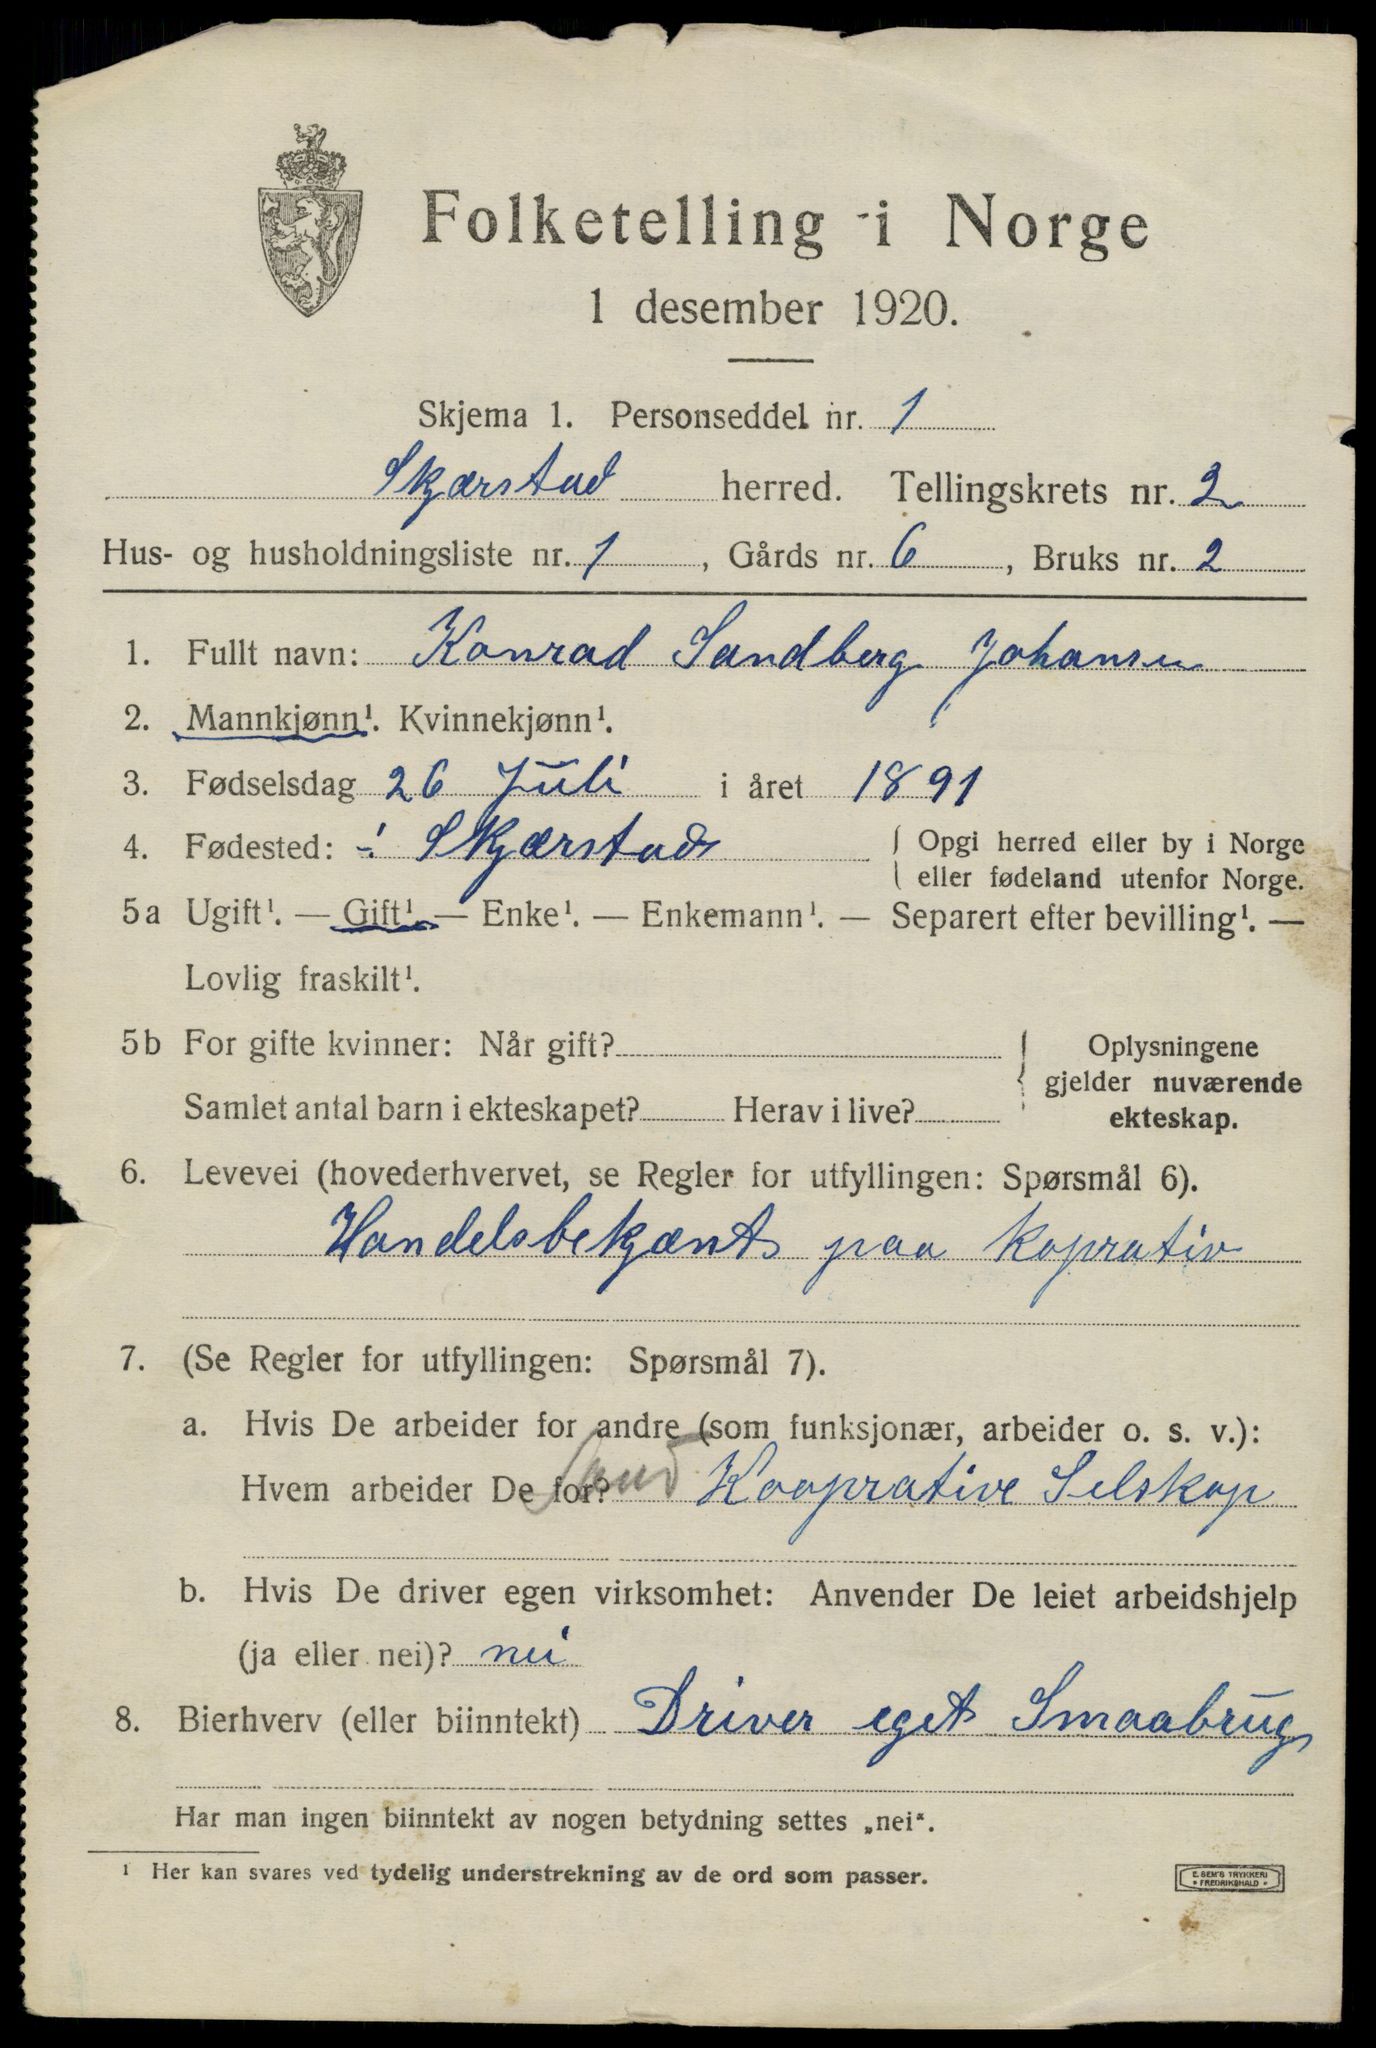 Folketelling i Norge
1 desember 1920.
Skjema 1. Personseddel nr. 1
Skjærstad herred. Tellingskrets nr. 2
Hus- og husholdningsliste nr. 1, Gårds nr. 6, Bruks nr. 2
1. Fullt navn: Konrad Sandberg Johansen
2. Mannkjønn¹. Kvinnekjønn¹.
3. Fødselsdag 26 Juli i året 1891
4. Fødested: i Skjærstad { Opgi herred eller by i Norge
{ eller fødeland utenfor Norge.
5a Ugift¹. — Gift¹. — Enke¹. — Enkemann¹. — Separert efter bevilling¹. —
Lovlig fraskilt¹.
5b For gifte kvinner: Når gift? { Oplysningene
gjelder nuværende
Samlet antal barn i ekteskapet? Herav i live? ekteskap.
6. Levevei (hovederhvervet, se Regler for utfyllingen: Spørsmål 6).
Handelsbekjænt paa koprativ
7. (Se Regler for utfyllingen: Spørsmål 7).
a. Hvis De arbeider for andre (som funksjonær, arbeider o. s. v.):
Hvem arbeider De for? Kooprative Selskap
b. Hvis De driver egen virksomhet: Anvender De leiet arbeidshjelp
(ja eller nei)? nei
8. Bierhverv (eller biinntekt) Driver eget Smaabrug
Har man ingen biinntekt av nogen betydning settes „nei".
¹ Her kan svares ved tydelig understrekning av de ord som passer.
E. SEM'S TRYKKERI
* FREDRIKSHALD *